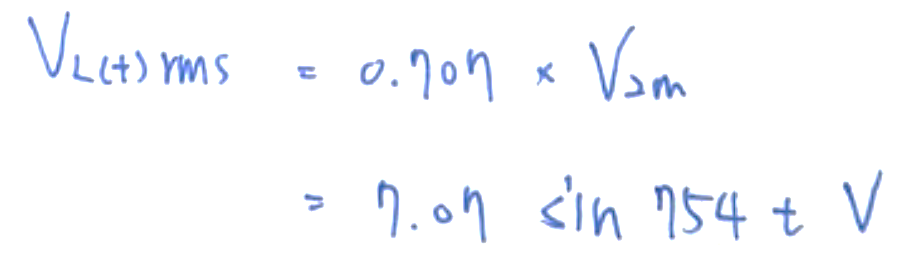 V_L(t) rms = 0.707 × V_2m
= 7.07 sin 754 t V